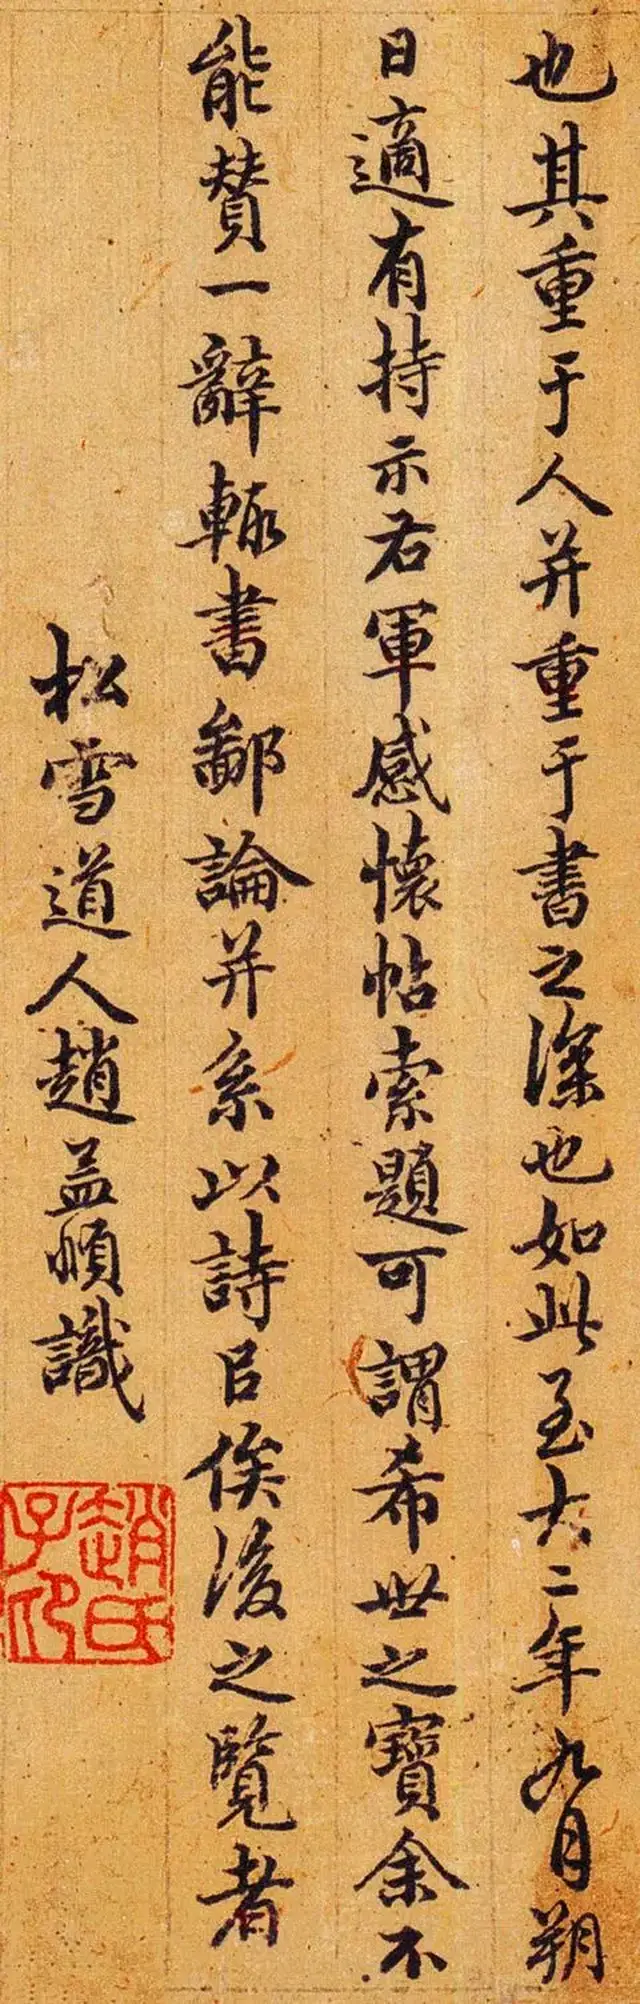 也其重于人并重于書之深也如此至大二年九月朔
日適有持示右軍感懷帖索題可謂希世之寶余不
能賛一辭輙書鄙論并系以詩㠯俟後之覽者
松雪道人趙孟頫識
趙氏子印